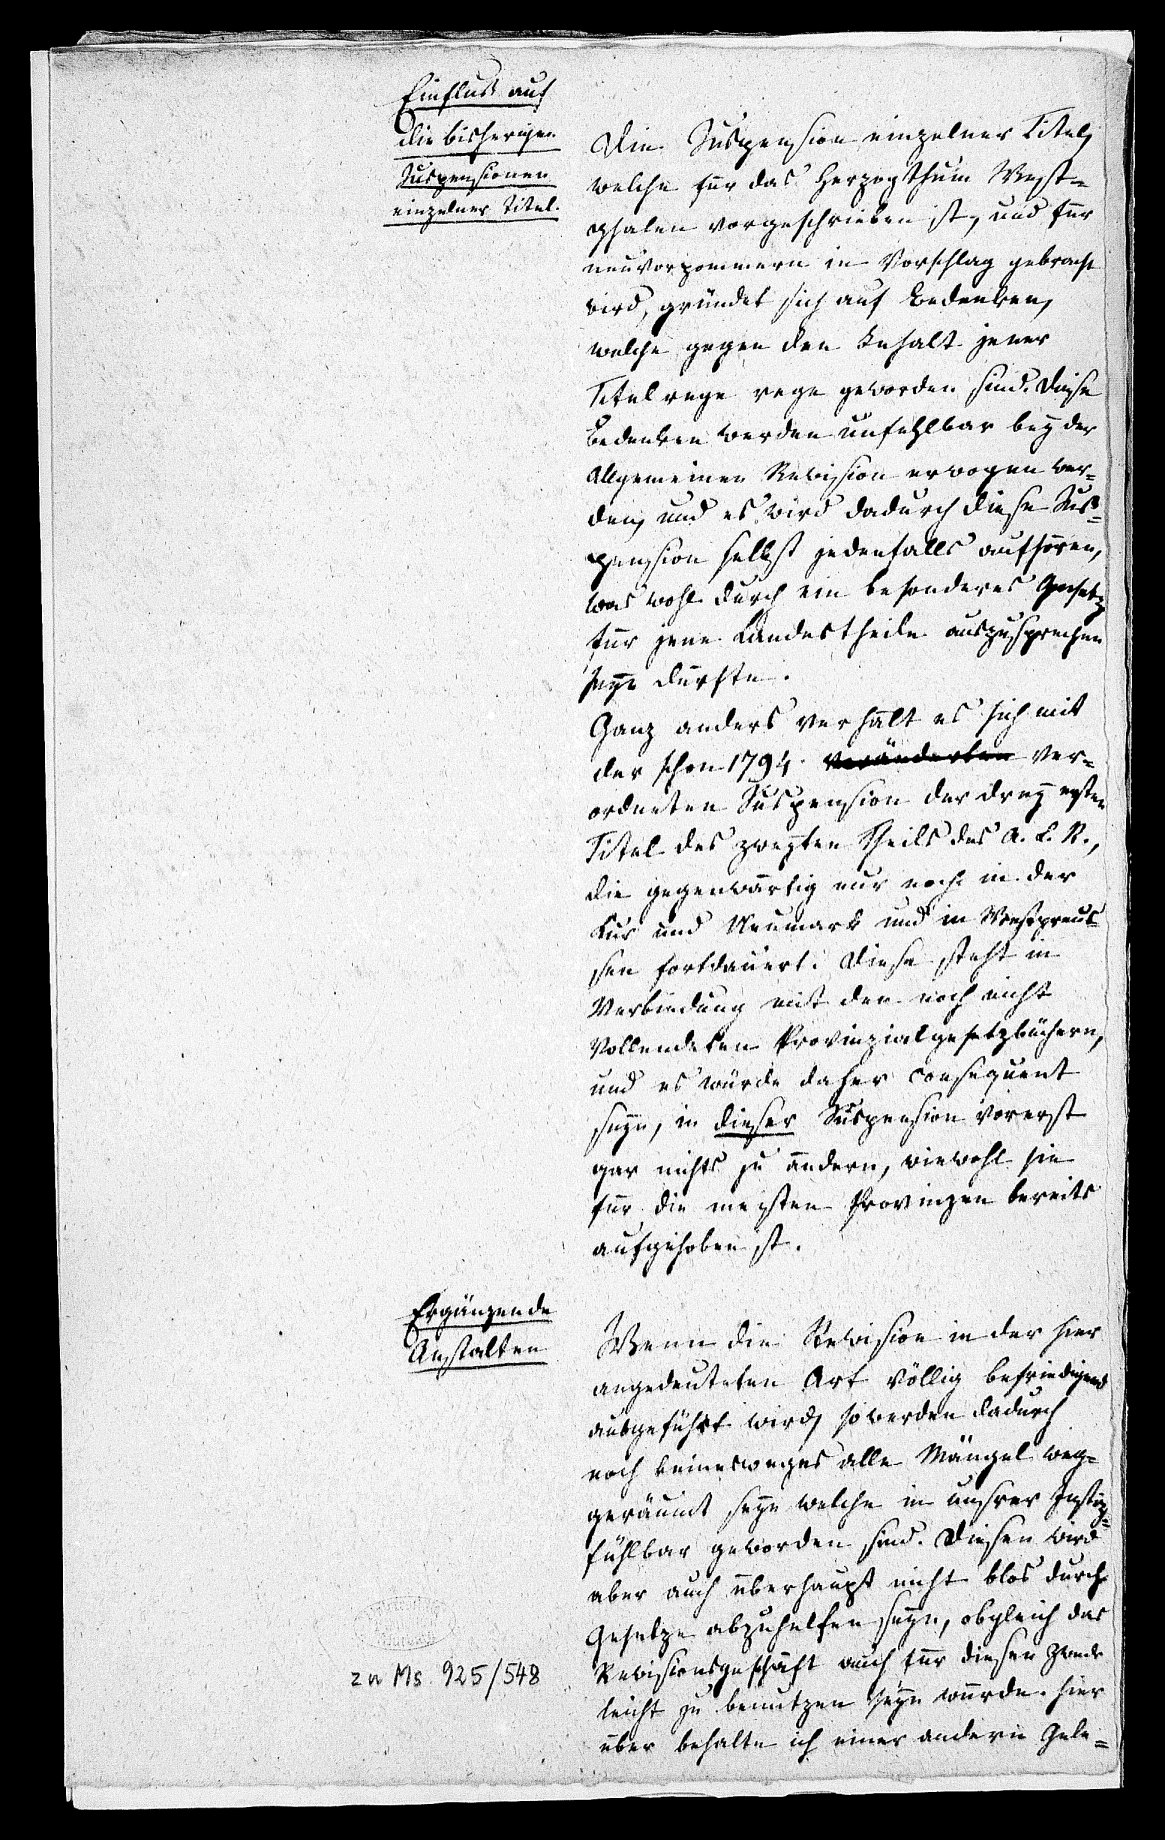 Einfluß auf
die bisherigen
Suspensionen
einzelner Titel.
Die Suspension einzelner Titel,
welche für das Herzogthum West-
phalen vorgeschrieben ist, und für
neuvorpommern in Vorschlag gebracht
wird, gründet sich auf Bedenken,
welche gegen den Inhalt jener
Titel rege geworden sind. Diese
Bedenken werden unfehlbar bey der
Allgemeinen Revision erwogen wer-
den, und es wird dadurch diese Sus-
pension selbst jedenfalls aufhören,
was wohl durch ein besonderes Gesetz
für jene Landestheile auszusprechen
seyn dürfte.
Ganz anders verhält es sich mit
der schon 1794. veränderten ver-
ordneten Suspension der drey ersten
Titel des zweyten Theils des A. L. R.,
die gegenwärtig nur noch in der
Kur und Neumark und in Westpreus-
sen fortdauert. Diese steht in
Verbindung mit den noch nicht
Vollendeten Provinzialgesetzbüchern,
und es würde daher consequent
seyn, in dieser Suspension vorerst
gar nichts zu ändern, wiewohl sie
für die meisten Provinzen bereits
aufgehoben ist.
Ergänzende
Anstalten
Wenn die Revision in der hier
angedeuteten Art völlig befriedigend
ausgeführt wird, so werden dadurch
noch keinesweges alle Mängel weg-
geräumt seyn welche in unsrer Justiz
fühlbar geworden sind. Diesen wird
aber auch überhaupt nicht blos durch
Gesetze abzuhelfen seyn, obgleich das
Revisionsgeschäft auch für diesen Zweck
leicht zu benutzen seyn würde. Hier
über behalte ich einer andern Gele-
zu Ms. 925/548